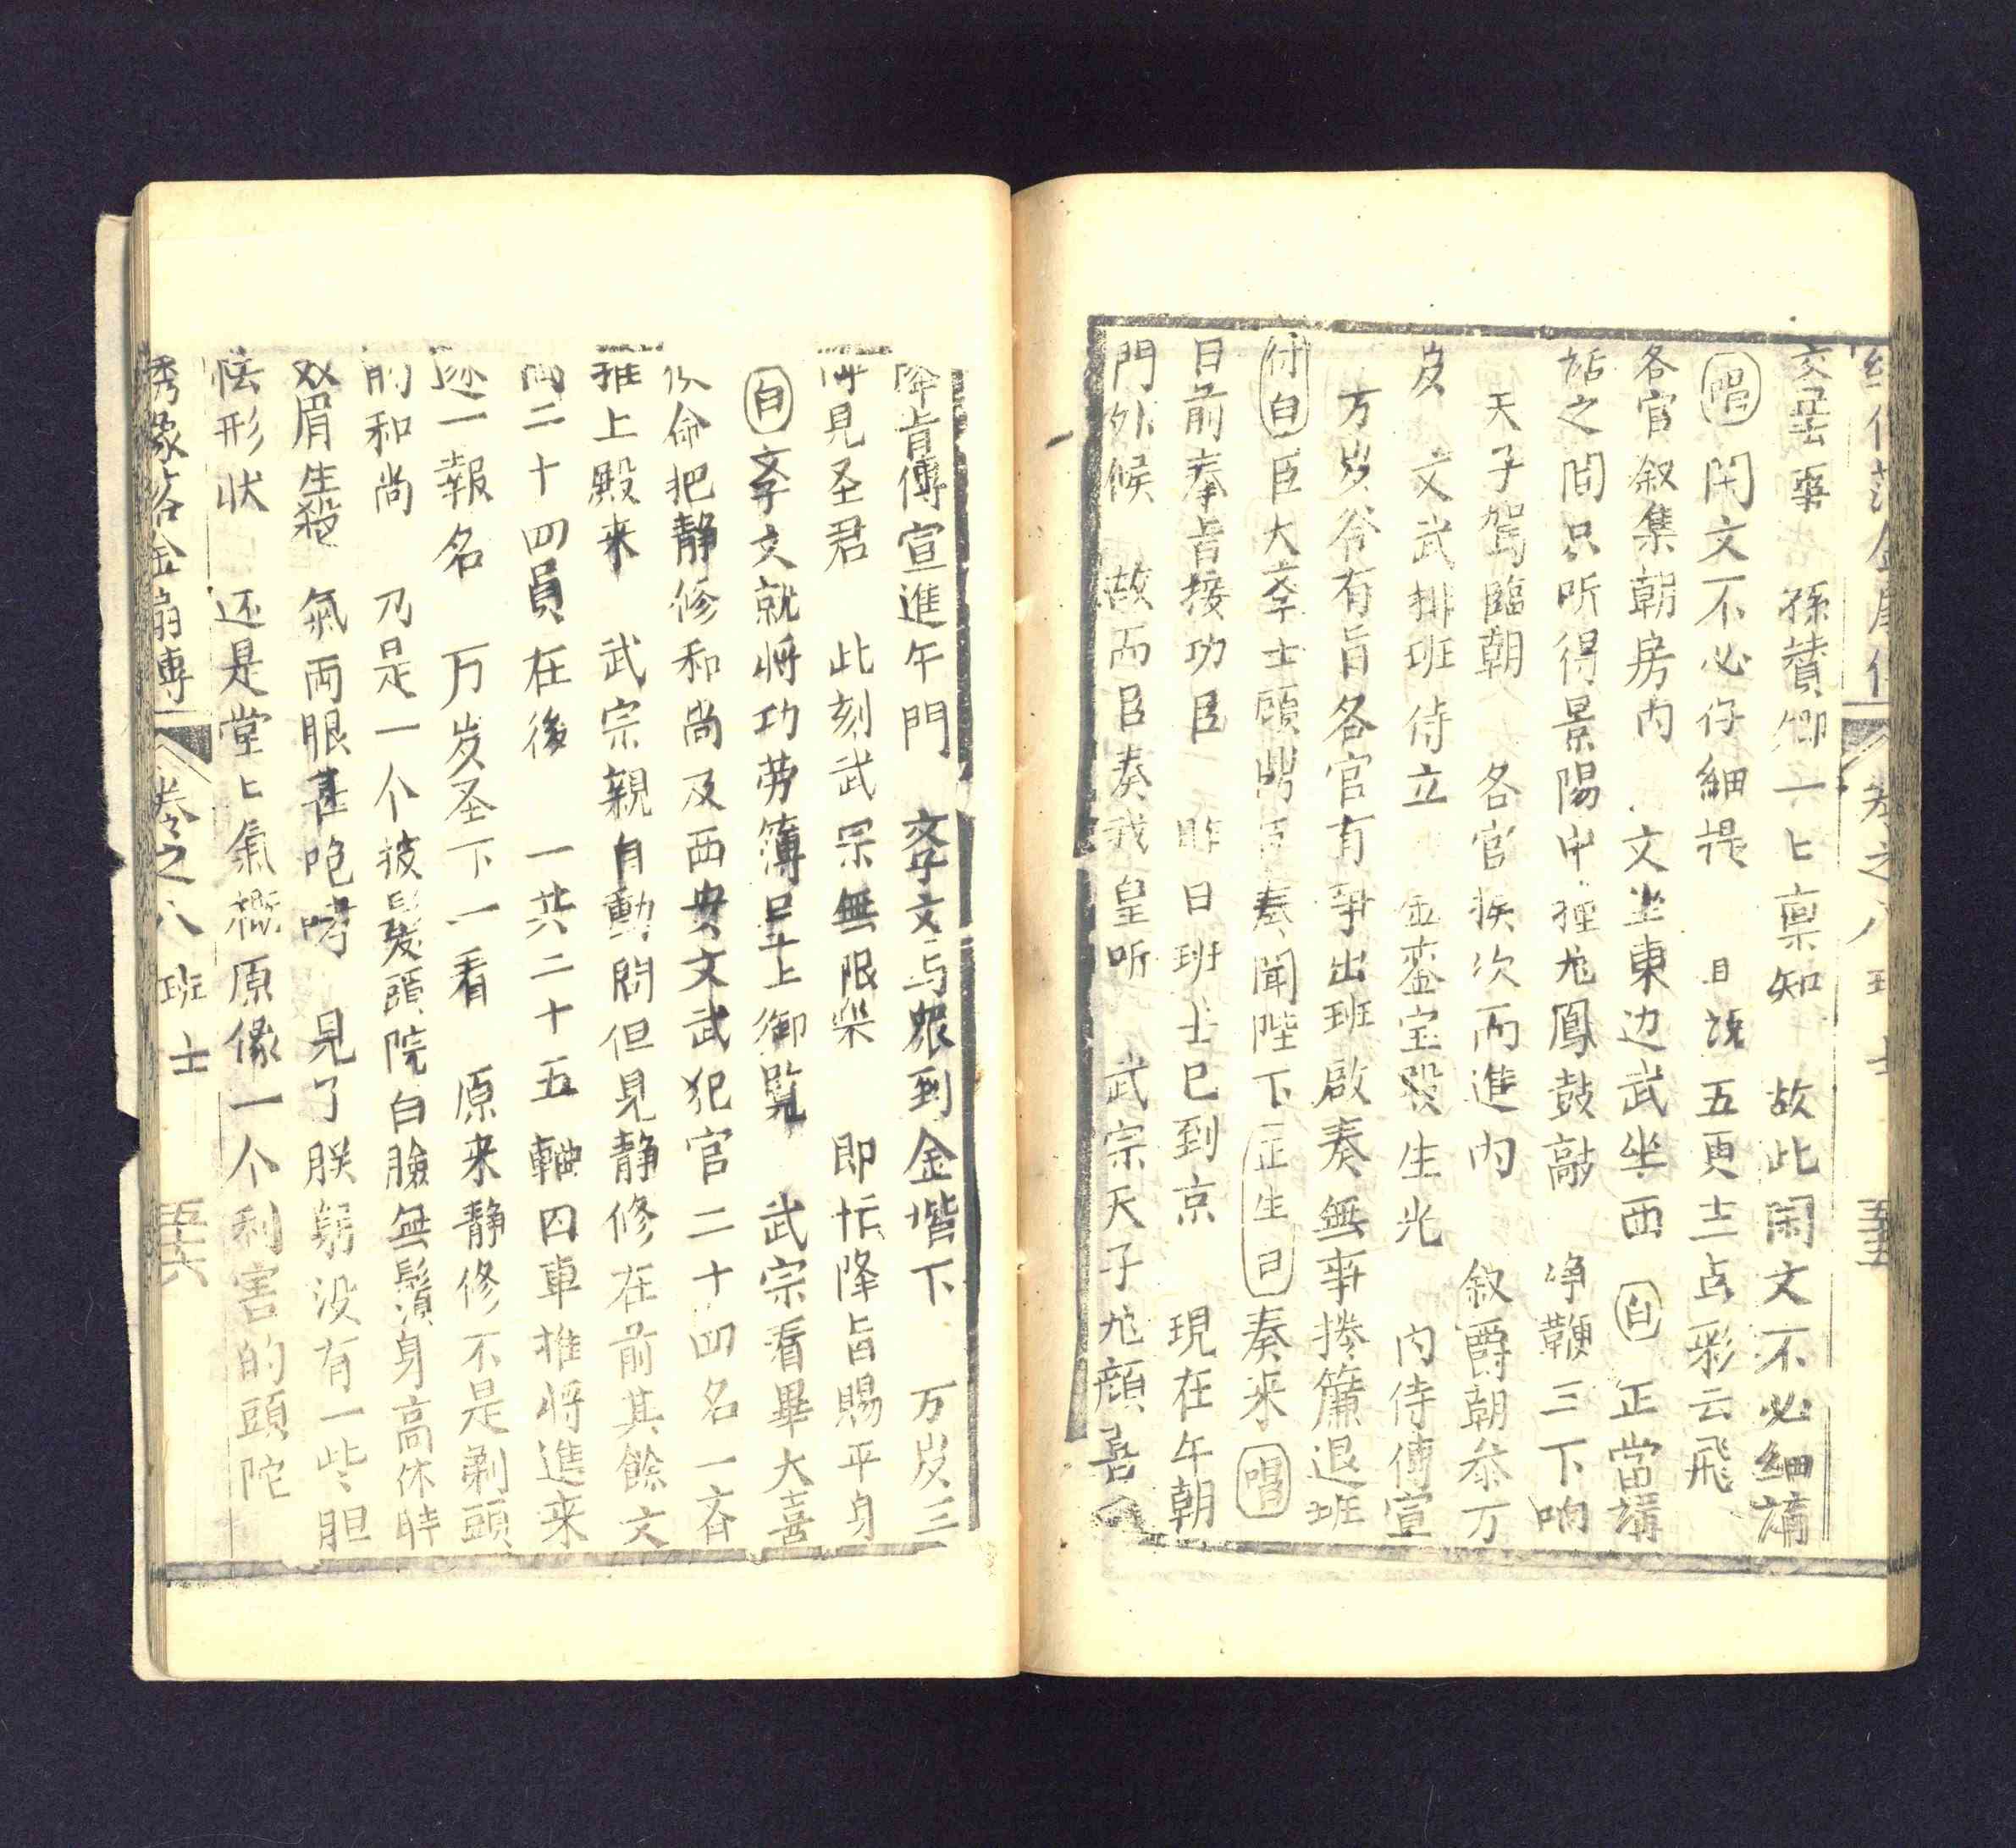 孫贊卿一〻禀知 故此闲文不必細
唱 闲文不必仔細提 五更士点彩云飛
各官叙集朝房内 文坐東边武坐西 白 正當講
話之間只听得景陽中撞尨鳳鼓敲 净鞭三下响
天子駕臨朝 各官挨次而進内 叙爵朝叅万
岁 文武排班侍立 金銮宝殿生光 内侍傅宣
万岁爷有旨各官有事出班啟奏無事捲簾退班
付白 臣大孝士顧鼎臣奏聞陛下 正生曰 奏来 唱
日前奉旨接功臣 昨日班士已到京 現在午朝
門外候 故而臣奏我皇听 武宗天子尨顔喜
降旨傅宣進午門 孝文与眾到金堦下 万岁三
呼見圣君 此刻武宗無限楽 即忙降旨賜平身
白 孝文就将功劳簿呈上御覧 武宗看畢大喜
命把静修和尚及西安文武犯官二十四名一斉
推上殿来 武宗親自動問但見静修在前其餘文
武二十四員在後 一共二十五輛囚車推将進来
逐一報名 万岁圣下一看 原来静修不是剃頭
的和尚 乃是一个披髪頭陀白臉無鬚身高体胖
双眉生殺氣両眼甚咆哮 見了朕躬没有一些胆
怯形状 还是堂〻氣概原像一个利害的頭陀
綉像落金扇傳 卷之八 班士 五十六